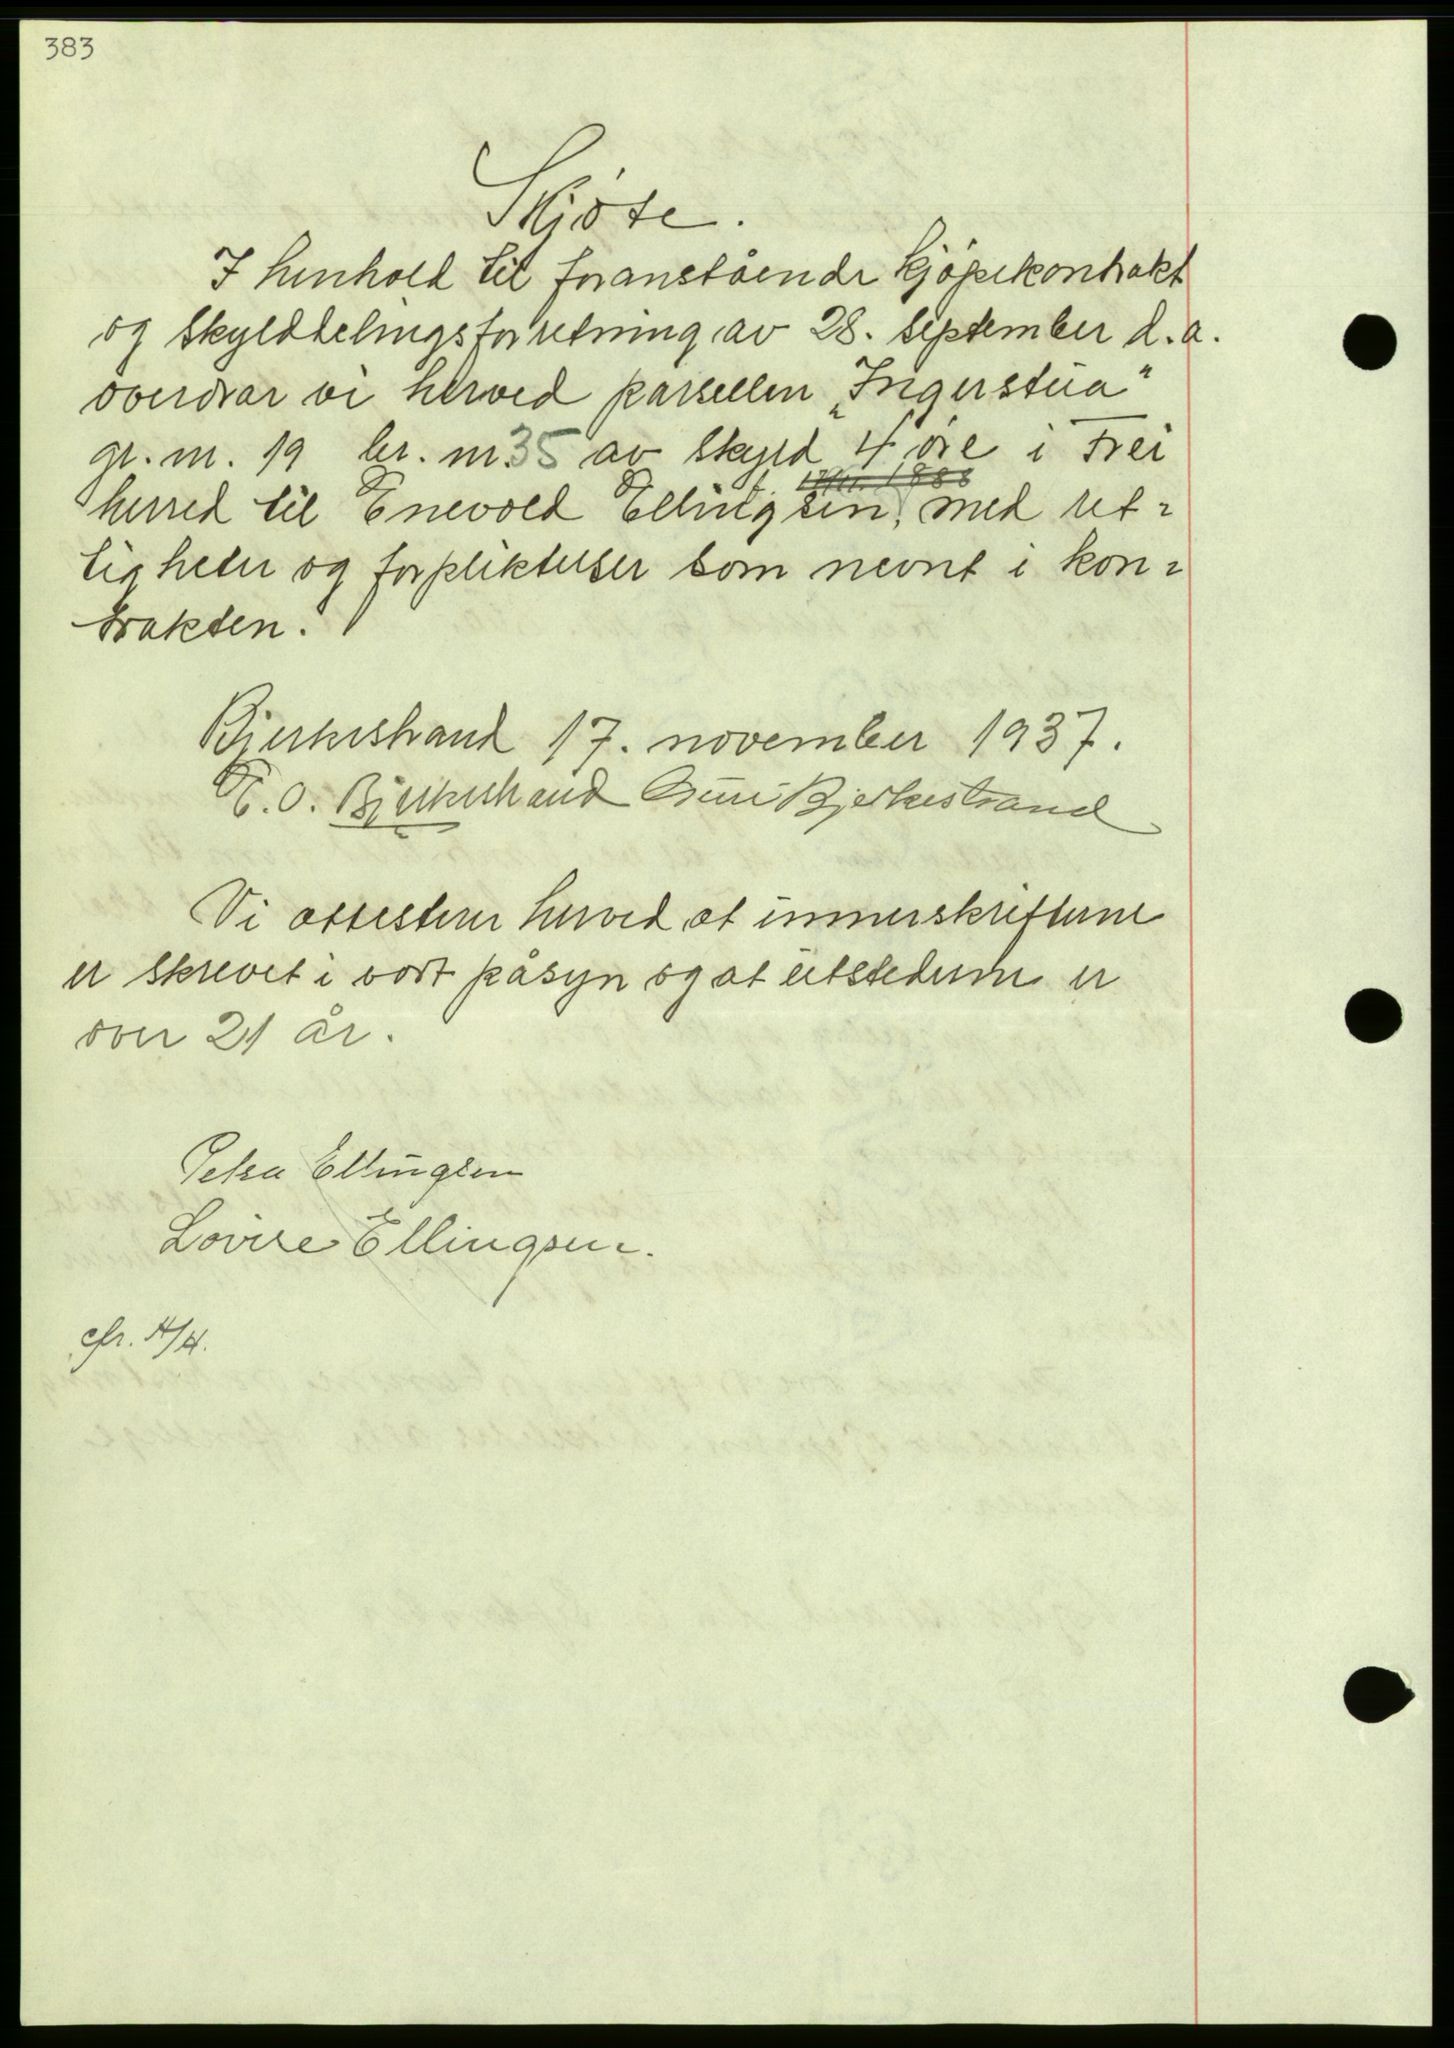 383
Skjøte.
I henhold til foranstående kjöpekontrakt
og skylddelingsforretning av 28. september d. a.
overdrar vi herved parsellen „Ingerstua"
gr. nr. 19 br. nr. 35 av skyld 4 øre i Frei
herred til Enevold Ellingsen, med ret-
tigheter og forpliktelser som nevnt i kon-
trakten.
Bjerkestrand 17. november 1937.
O. Bjerkestrand Guri Bjerkestrand
Vi attesterer herved at unnerskriftene
er skrevet i vort påsyn og at utstederne er
over 21 år.
Petra Ellingsen
Lovise Ellingsen.
cfr.